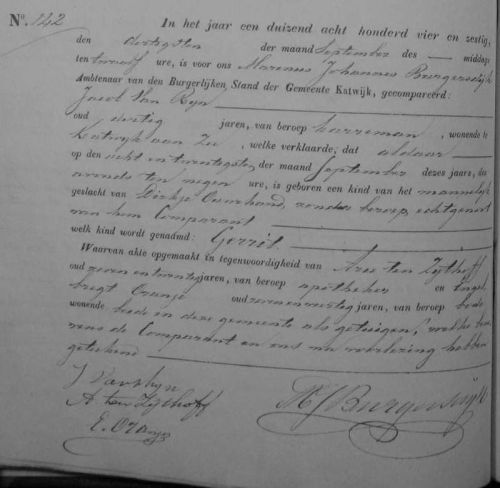 No. 142
In het jaar een duizend acht honderd vier en zestig,
den dertigsten der maand September des — middags
ten twaalf ure, is voor ons Marinus Johannes Burgersdijk
Ambtenaar van den Burgerlijken Stand der Gemeente Katwijk, gecompareerd:
Jacob Van Ryn
oud dertig jaren, van beroep karreman, wonende te
Katwijk aan Zee, welke verklaarde, dat aldaar
op den acht en twintigsten der maand September dezes jaars, des
avonds ten negen ure, is geboren een kind van het mannelijk
geslacht van Dirkje Ouwehand, zonder beroep, echtgenoot
van hem Comparant
welk kind wordt genaamd: Gerrit.
Waarvan akte opgemaakt in tegenwoordigheid van Arie ten Zijthoff
oud zeven en twintig jaren, van beroep apotheker en Engel
Oranje oud zeven en zestig jaren, van beroep
wonende beide in deze gemeente als getuigen, welke be
nevens de Comparant en ons na voorlezing hebben
geteekend
J Van Ryn
A ten Zijthoff
E. Oranje
MJBurgersdijk